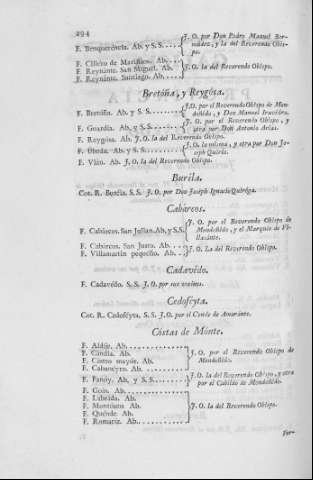 294
F. Benquerencia. Ab. y S.S. .... J. O. por Don Pedro Manuel Bermudez, y la del Reverendo Obispo.
F. Cillero de Ab. ..
F. Reynante. San Miguel. Ab.
F. Reynante. Santiago. Ab. ...
J. O. la del Reverendo Obispo.
Bretóña, y Reygósa.
F. Bretóña. Ab. y S. S. ...... J. O. por el Reverendo Obispo de Mondoñedo, y Don Manuel
F. Guardia. Ab. y S.S. ...... J. O. por el Reverendo Obispo, y otra por Don Antonio Arias.
F. Reygósa. Ab. J. O. la del Reverendo Obispo.
F. Ubeda. Ab. y S. S. ...... J. O. la misma, y otra por Don Joseph
F. Vián. Ab. J. O. la del Reverendo Obispo.
Buríla.
Cot. R. S. S. J. O. por Don Joseph Ignacio Quiróga.
Cabárcos.
F. Cabárcos. San Julian. Ab. y S.S. J. O. por el Reverendo Obispo de Mondoñedo, y el Marqués de
F. Cabárcos. San Justo. Ab. ..
F. Villamartin pequeño. Ab. ..
J. O. La del Reverendo Obispo.
Cadavédo.
F. Cadavédo. S. S. J. O. por sus vecinos.
Cedoféyta.
Cot. R. Cedoféyta. S. S. J. O. por el Conde de Amarante.
Cóstas de Mónte.
F. Aldúje. Ab. ...........
F. Candia. Ab. ...........
F. Castro mayór. Ab. ......
F. Cabanéyro. Ab. ........
J. O. por el Reverendo Obispo de Mondoñedo.
F. Fanóy. Ab. y S. S. ...... J. O. la del Reverendo Obispo, y otra por el Cabildo de Mondoñedo.
F. Goás. Ab. ...........
F. Labráda. Ab. .........
F. Montóuto Ab. .........
F. Quénde. Ab. .........
F. Romaríz. Ab. .........
J. O. la del Reverendo Obispo.